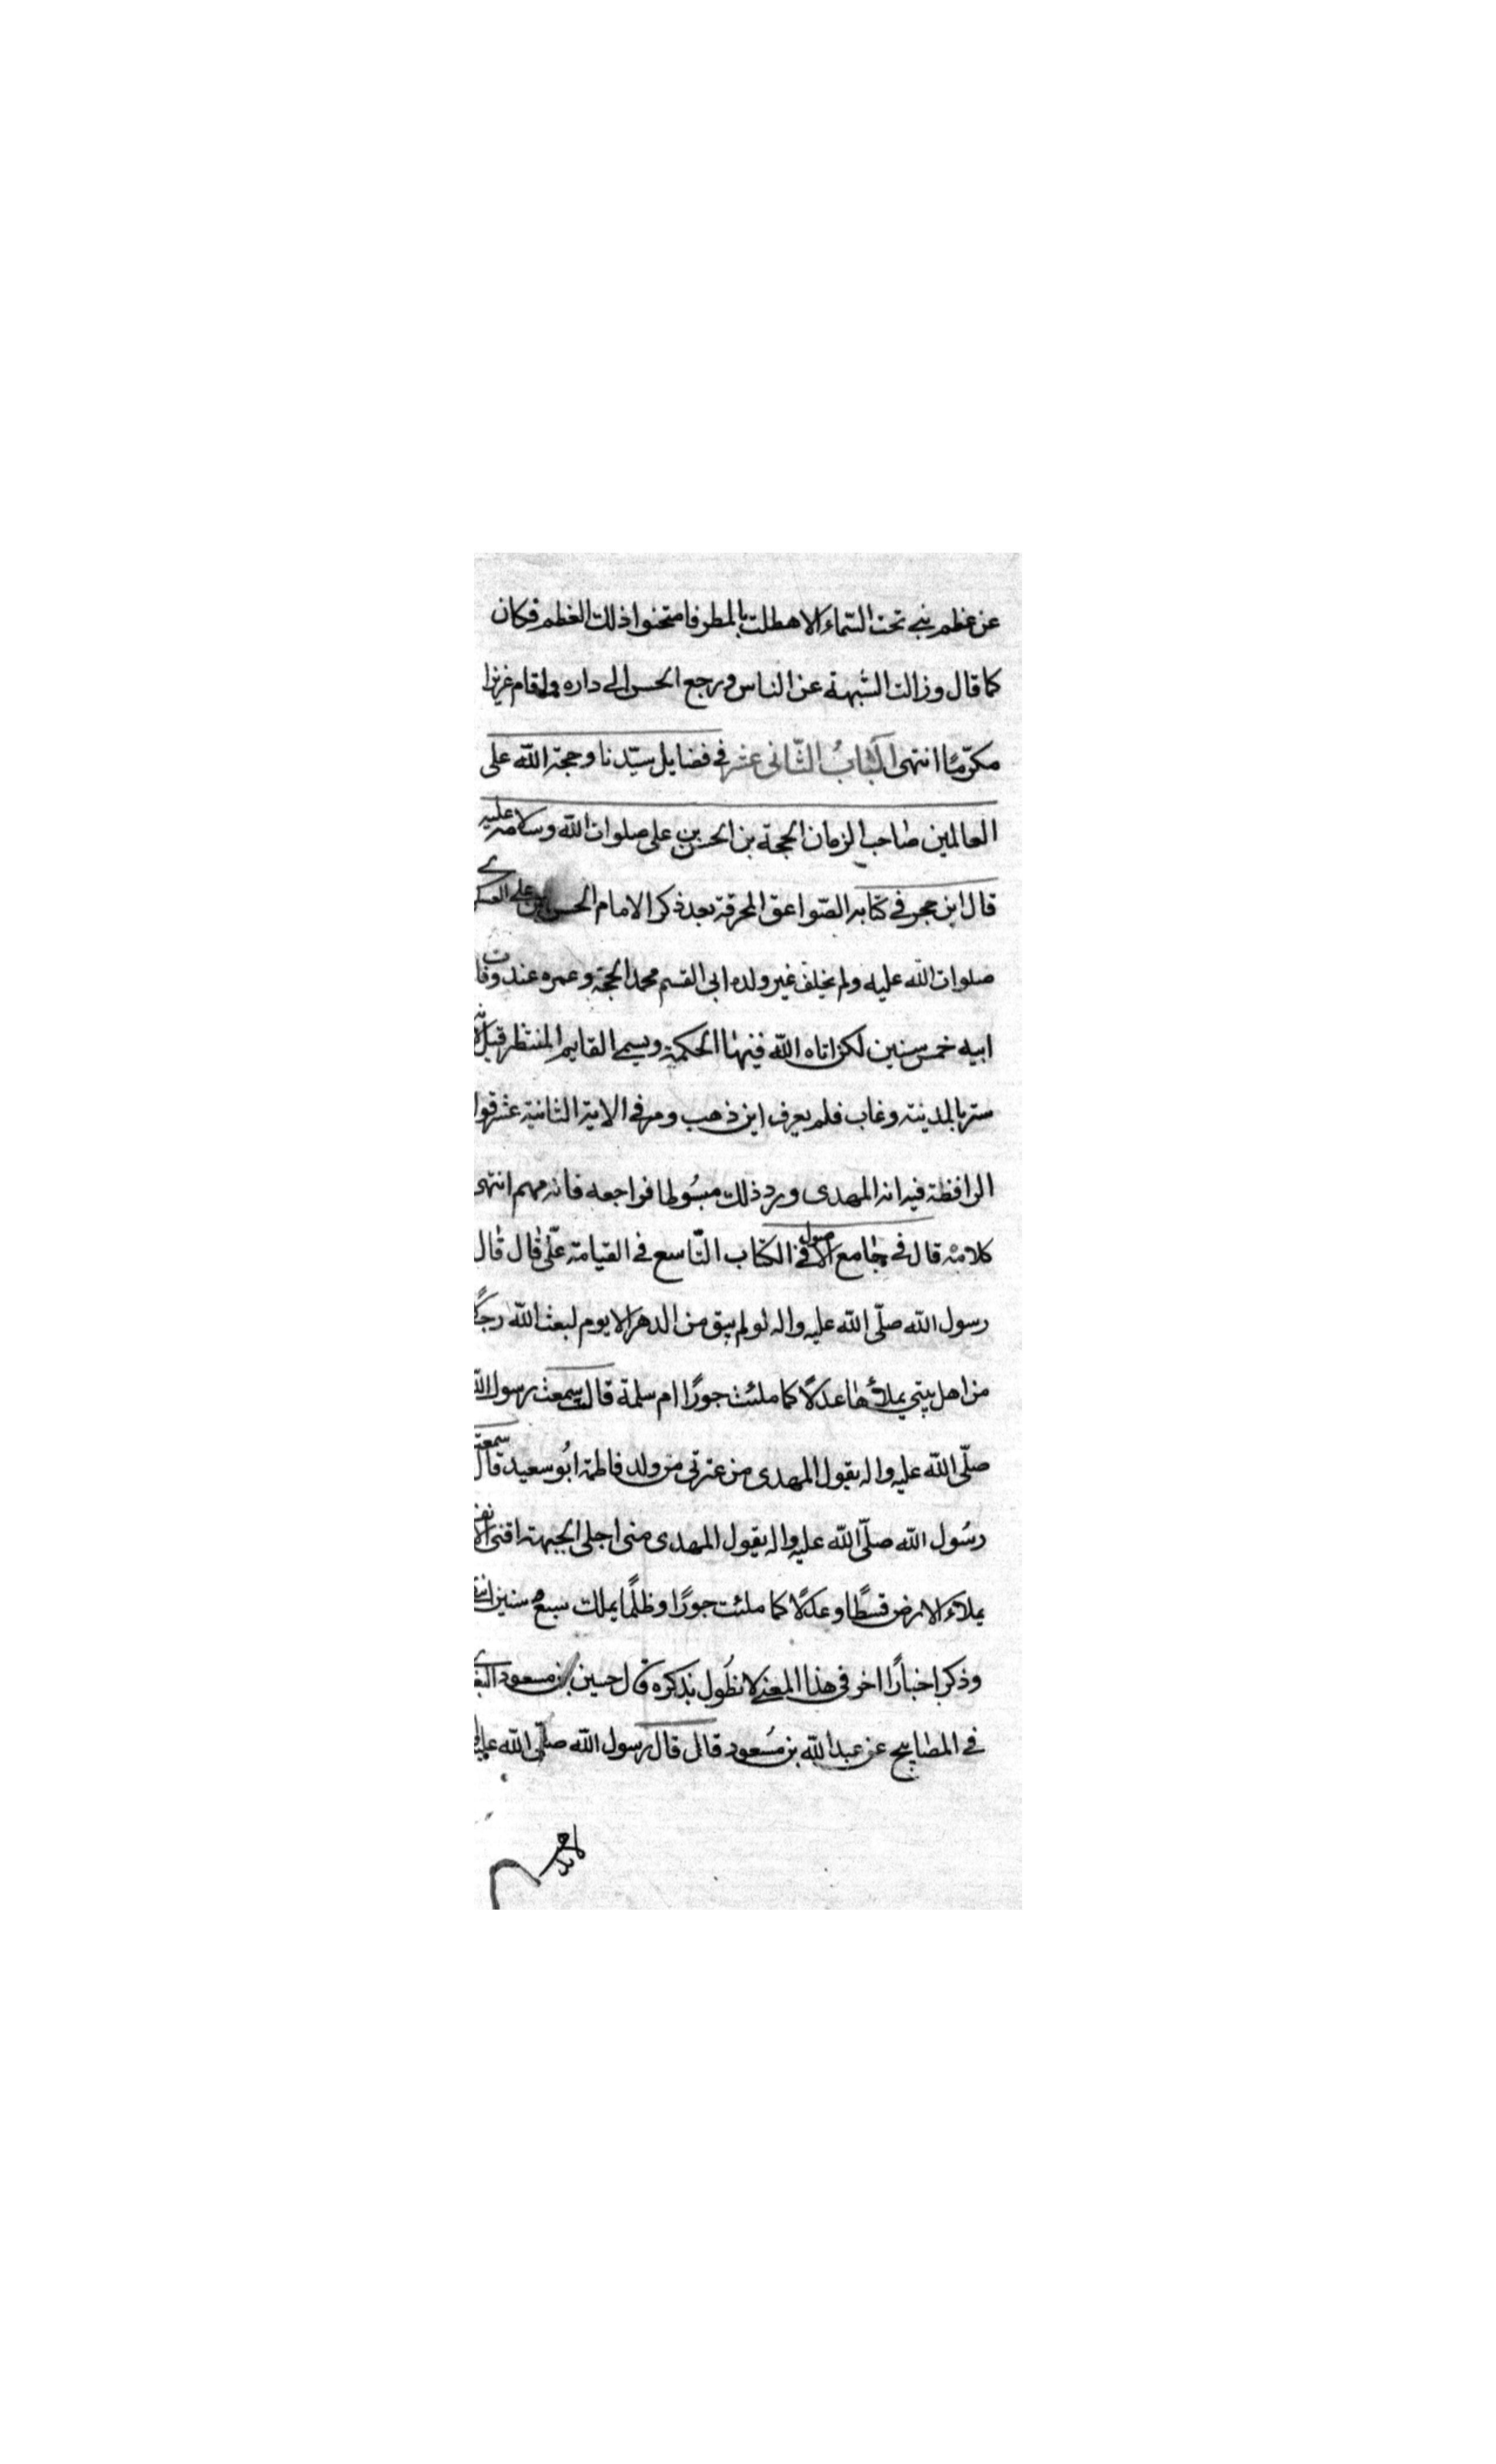 عن عظم نبي تحت السّماء الا هطلت بالمطر فامتحنوا ذلك العظم فكان
كما قال وزالت الشبهة عن الناس ورجع الحسن الى داره واقام عزيزا
مكرّمًا انتهى الباب الثّاني عشر في فضايل سيّدنا وحجة اللّه على
العالمين صاحب الزمان الحجة بن الحسن بن على صلوات اللّه وسلامه عليه
قال ابن حجر في كتابه الصّواعق المحرقة بعد ذكر الامام الحسن بن على العسكري
صلوات اللّه عليه ولم يخلف غير ولده ابى القسم محمد الحجة وعمره عند وفات
ابيه خمس سنين لكن اتاه اللّه فيها الحكمة ويسمى القايم المنتظر قيل لانه
ستر بالمدينة وغاب فلم يعرف اين ذهب ومر في الاية الثانية عشر قول
الرافظة فيه انه المهدى ورد ذلك مبسُوطا فراجعه فانه مهم انتهى
كلامه قال في جامع الاصول في الكتاب التّاسع في القيامة علّى قال قال
رسول اللّه صلّى اللّه عليه واله لو لم يبق من الدهر الا يوم لبعث اللّه رجلًا
من اهل بيتي يملأها عدلًا كما ملئت جورًا ام سلمة قالت سمعت رسول اللّه
صلّى اللّه عليه واله يقول المهدى من عترتى من ولد فاطمة ابُو سعيد قال سمعت
رسُول اللّه صلّى اللّه عليه واله يقول المهدى منى اجلى الجبهة اقنى الانف
يملاء الارض قسطًا وعدلًا كما ملئت جورًا وظلمًا يملك سبع سنين انتهى
وذكر اخبارًا اخر في هذا المعنى لا نطُول بذكره قال حسين بن مسعود البغوي
في المصابيح عن عبد اللّه بن مسُعود قال قال رسول اللّه صلّى اللّه عليه